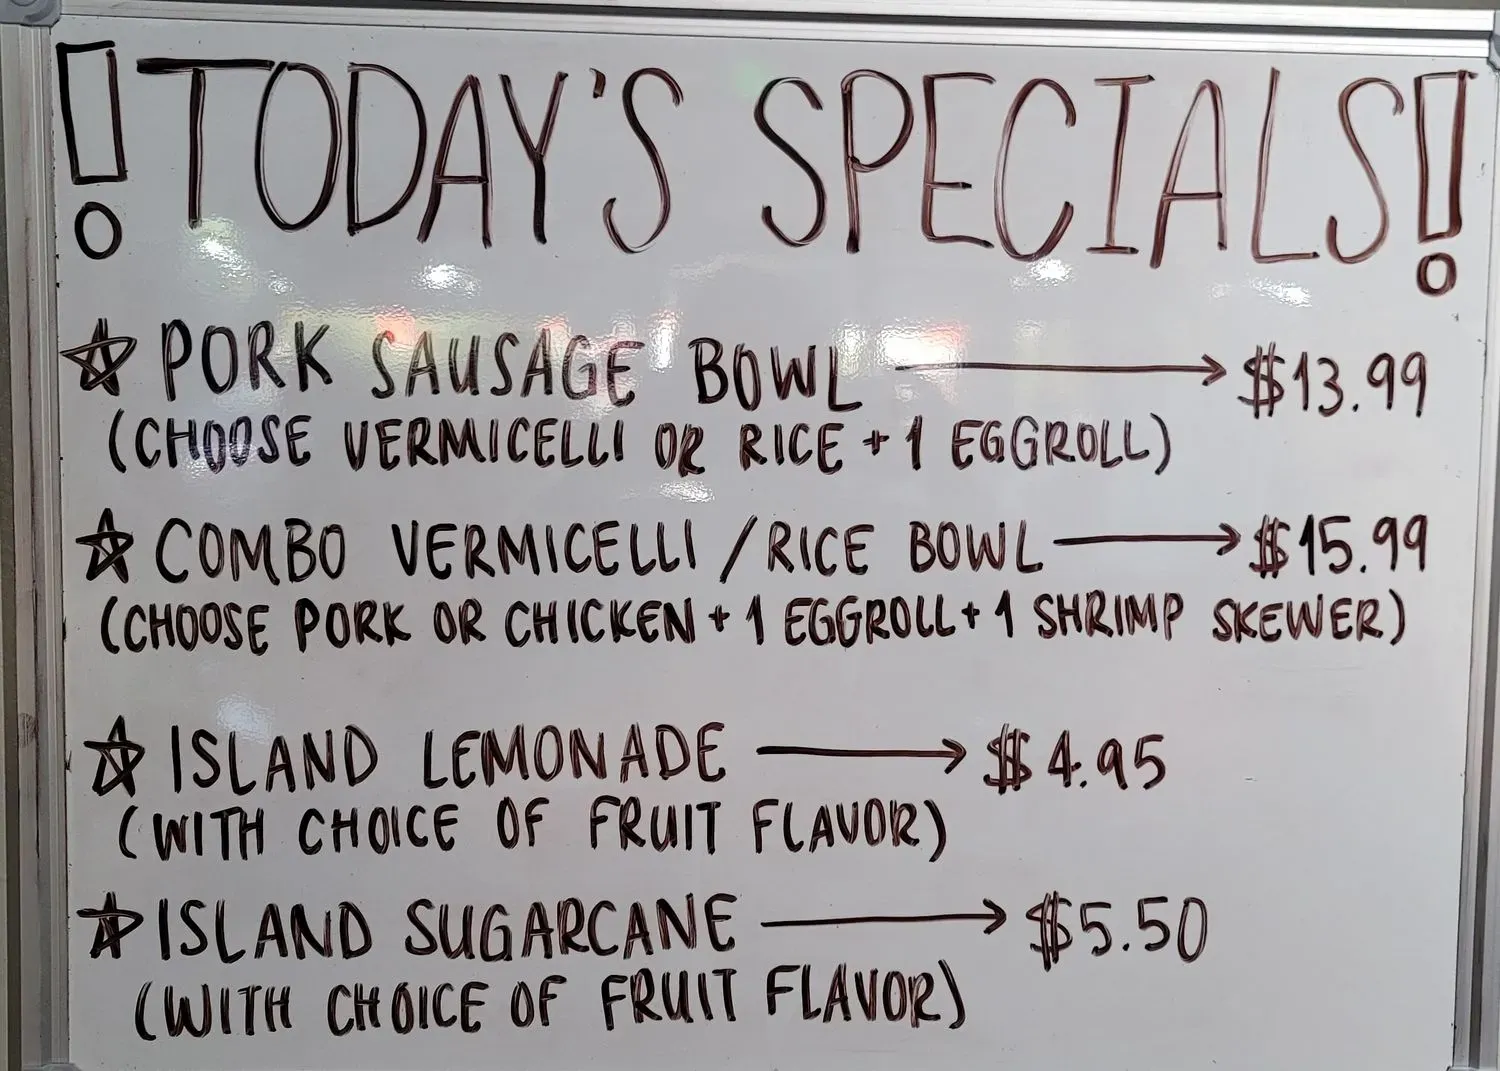 !TODAY'S SPECIALS!
☆ PORK SAUSAGE BOWL → $13.99
(CHOOSE VERMICELLI OR RICE + 1 EGGROLL)
☆ COMBO VERMICELLI / RICE BOWL → $15.99
(CHOOSE PORK OR CHICKEN + 1 EGGROLL + 1 SHRIMP SKEWER)
☆ ISLAND LEMONADE → $4.95
(WITH CHOICE OF FRUIT FLAVOR)
☆ ISLAND SUGARCANE → $5.50
(WITH CHOICE OF FRUIT FLAVOR)